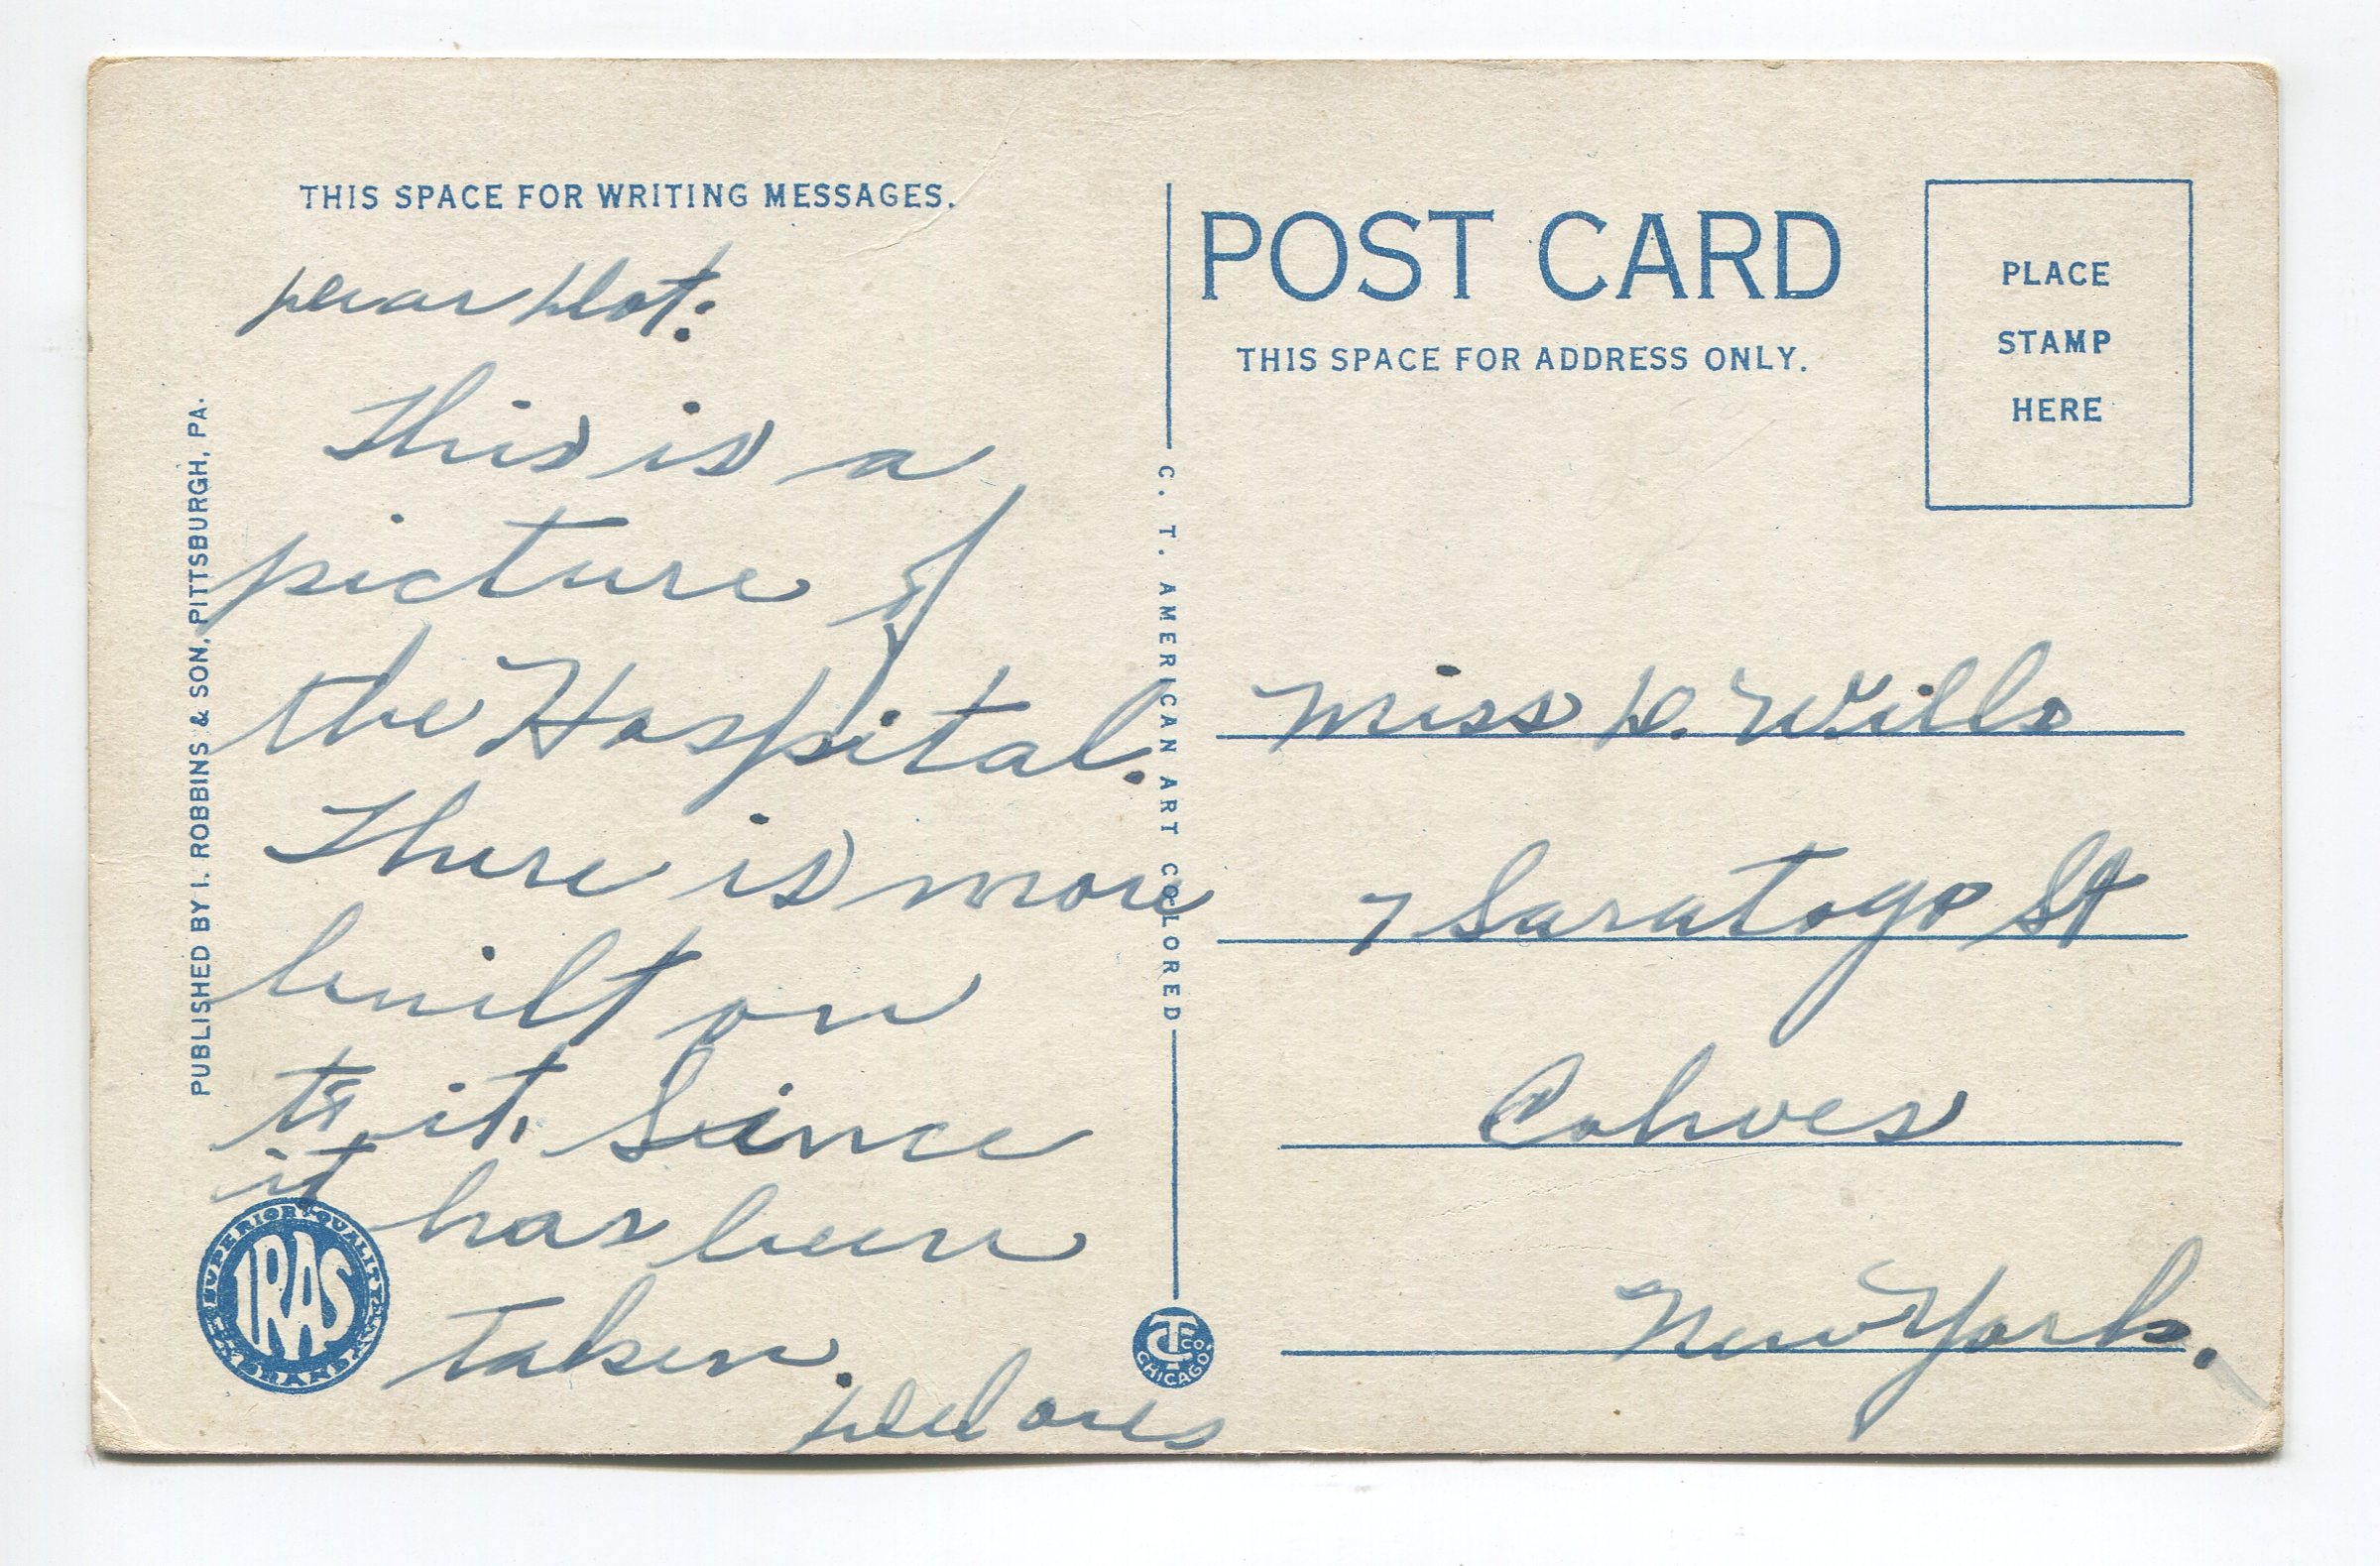 THIS SPACE FOR WRITING MESSAGES.
Dear Dot:
This is a
picture of
the Hospital.
There is more
built on
to it. Since
it has been
taken.
Delores
PUBLISHED BY I. ROBBINS & SON, PITTSBURGH, PA.
SUPERIOR QUALITY
IRAS
BRAND
C. T. AMERICAN ART COLORED
CT CO.
CHICAGO
POST CARD
THIS SPACE FOR ADDRESS ONLY.
PLACE
STAMP
HERE
Miss D. Wills
7 Saratoga St
Cohoes
New York.